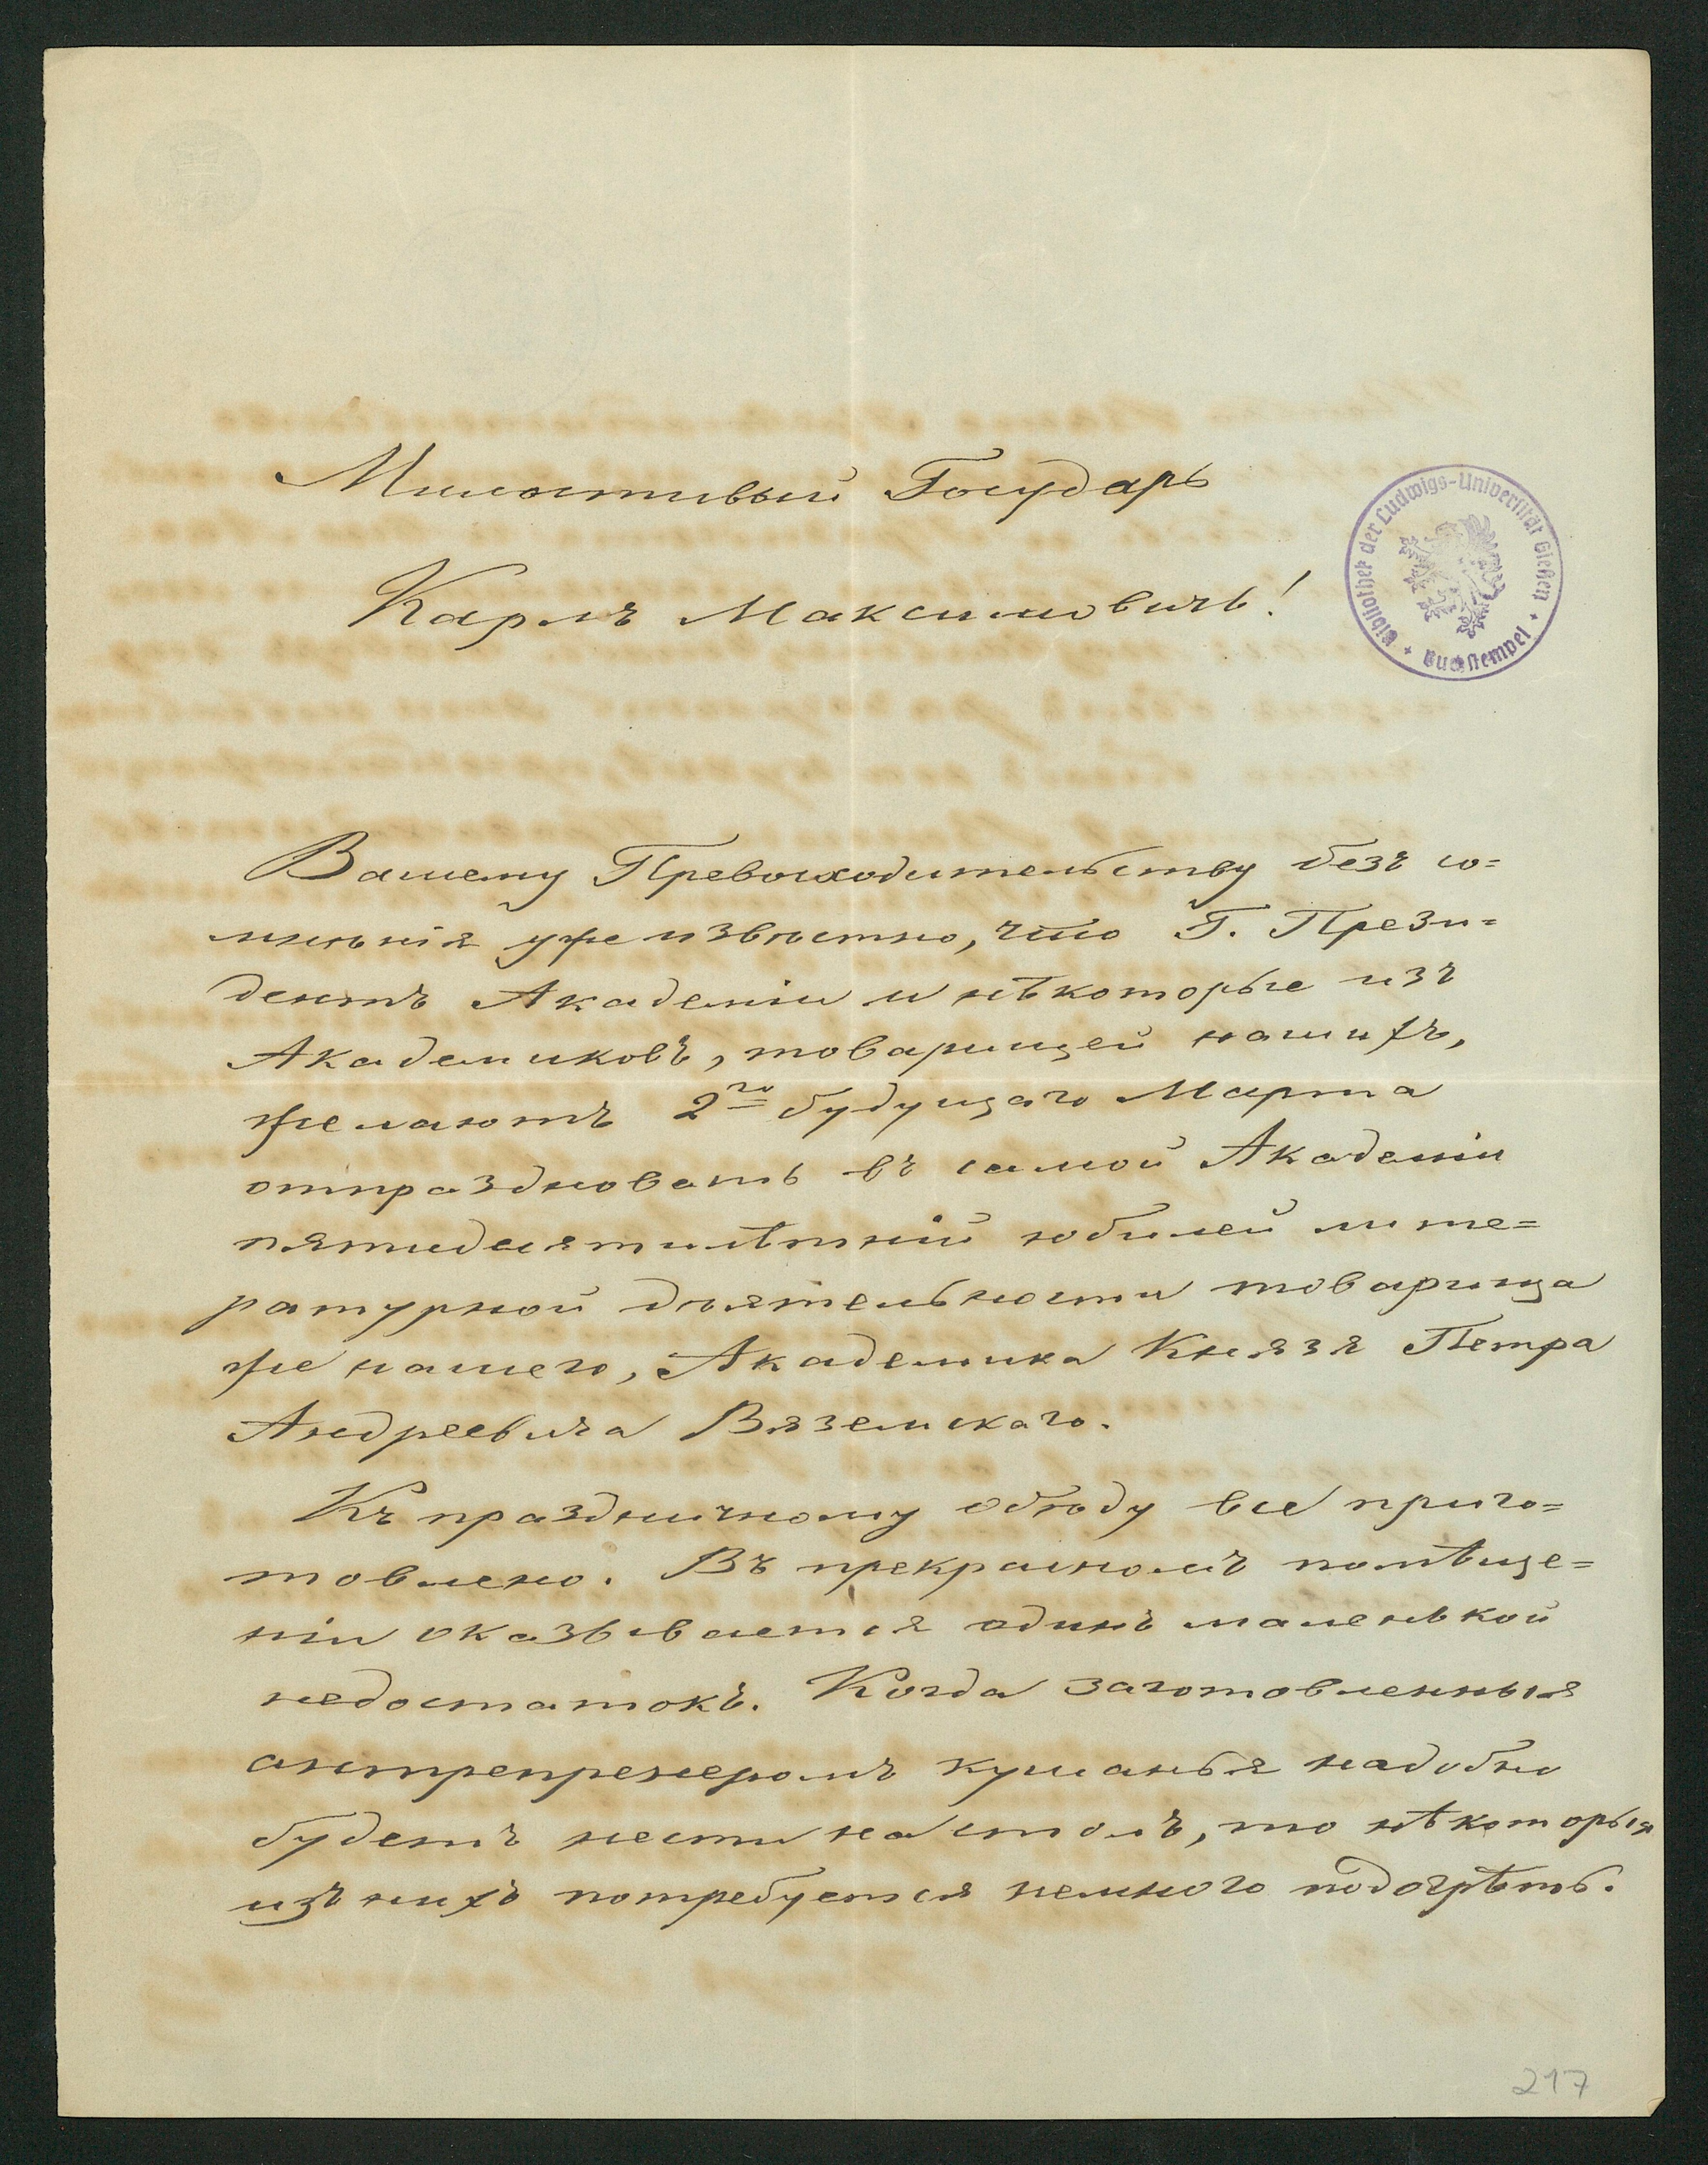 Милостивый Государь
Карлъ Максимовичъ!
Bibliothek der Ludwigs-Universität Gießen + Buchstempel +
Вашему Превосходительству безъ со=
мнѣнія уже извѣстно, что Г. Прези=
дентъ Академіи и нѣкоторые изъ
Академиковъ, товарищей нашихъ,
желаютъ 2го будущаго Марта
отпраздновать въ самой Академіи
пятидесятилѣтній юбилей лите=
ратурной дѣятельности товарища
же нашего, Академика Князя Петра
Андреевича Вяземскаго.
Къ праздничному обѣду все приго=
товлено. Въ прекрасномъ помѣще=
ніи оказывается одинъ маленькой
недостатокъ. Когда заготовленныя
антрепренеромъ кушанья надобно
будетъ нести на столъ, то нѣкоторыя
изъ нихъ потребуется немного подогрѣть.
217